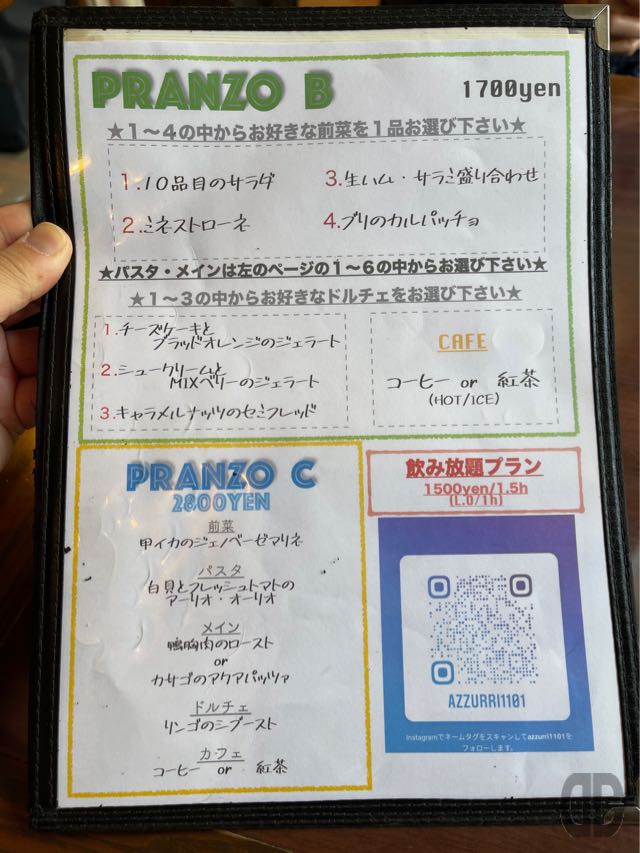 PRANZO B
1700yen
★１～４の中からお好きな前菜を１品お選び下さい★
1.10品目のサラダ
3.生ハム・サラミ盛り合わせ
2.ミネストローネ
4.ブリのカルパッチョ
★パスタ・メインは左のページの１～６の中からお選び下さい★
★１～３の中からお好きなドルチェをお選び下さい★
1.チーズケーキと
ブラッドオレンジのジェラート
2.シュークリームと
MIXベリーのジェラート
3.キャラメルナッツのセミフレッド
CAFE
コーヒー or 紅茶
(HOT/ICE)
PRANZO C
2800YEN
前菜
甲イカのジェノベーゼマリネ
パスタ
白貝とフレッシュトマトの
アーリオ・オーリオ
メイン
鴨胸肉のロースト
or
カサゴのアクアパッツァ
ドルチェ
リンゴのシブースト
カフェ
コーヒー or 紅茶
飲み放題プラン
1500yen/1.5h
(L.O/1h)
AZZURRI1101
Instagramでネームタグをスキャンしてazzurri1101を
フォローします。